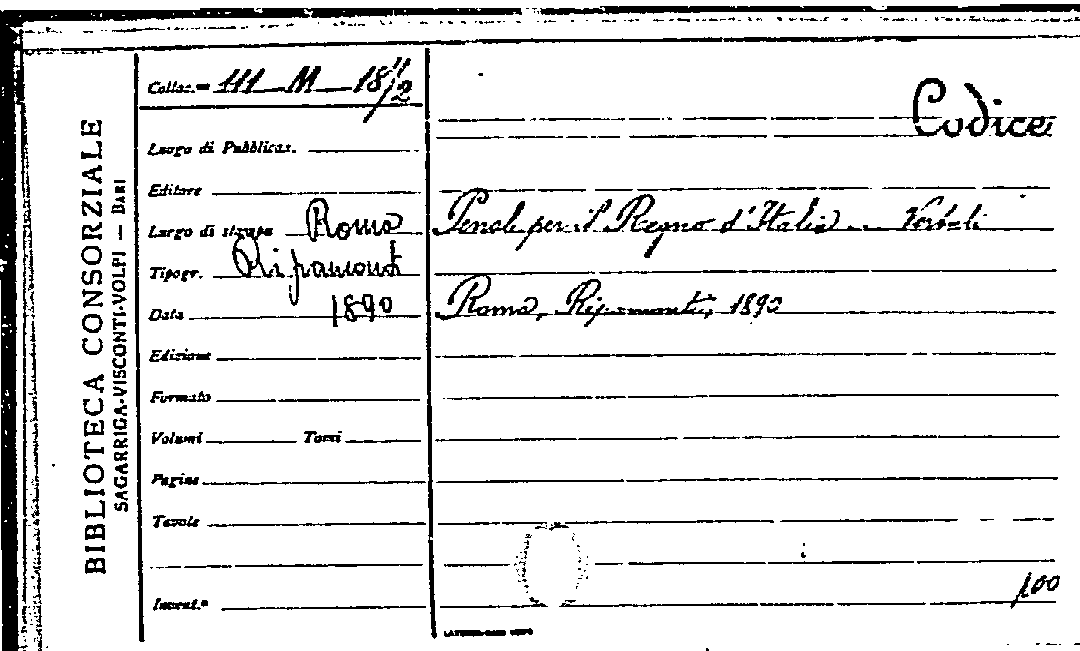 BIBLIOTECA CONSORZIALE
SAGARRIGA-VISCONTI-VOLPI — BARI
Colloc.ne 111 M 18 11/2
Luogo di Pubblicaz.
Editore
Luogo di stampa Roma
Tipogr. Ripamont
Data 1890
Edizione
Formato
Volumi Tomi
Pagine
Tavole
Invent.º
Codice
Penale per il Regno d'Italia... Verbali
Roma, Ripamonti, 1890
100